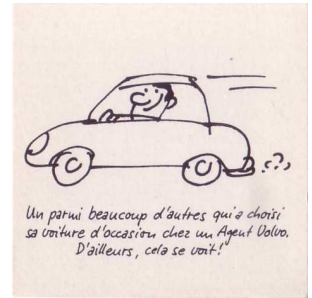 Un parmi beaucoup d'autres qui a choisi
sa voiture d'occasion chez un Agent Volvo.
D'ailleurs, cela se voit!